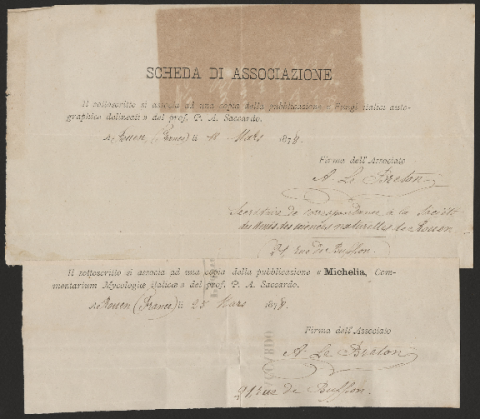 SCHEDA DI ASSOCIAZIONE
Il sottoscritto si associa ad una copia della pubblicazione « Fungi italici auto-
graphice delineati » del prof. P. A. Saccardo.
A Rouen (France) li 18 Mars 1878.
Firma dell'Associato
A. Le Breton
Secrétaire de correspondance à la Société
des Amis des sciences naturelles de Rouen
21, rue de Buffon
Il sottoscritto si associa ad una copia della pubblicazione « Michelia, Com-
mentarium Mycologiae italicae » del prof. P. A. Saccardo.
A Rouen (France) li 25 Mars 1878.
Firma dell'Associato
A. Le Breton
21, rue de Buffon.